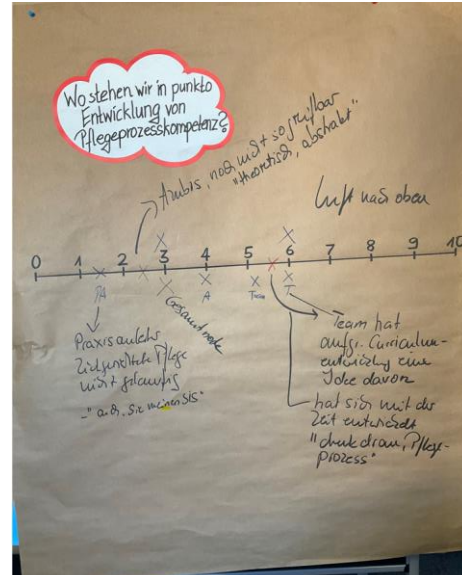 Wo stehen wir in punkto
Entwicklung von
Pflegeprozesskompetenz?
Azubis, noch nicht so greifbar
"theoretisch, abstrakt"
Luft nach oben
0 1 2 3 4 5 6 7 8 9 10
PA
A
Team
T
Gesamtnote
Praxisanleiter
Pflege
nicht geläufig
Team hat
aufgr. Curriculum-
entwicklung eine
Idee davon
hat sich mit der
Zeit entwickelt
"denk dran, Pflege-
prozess"